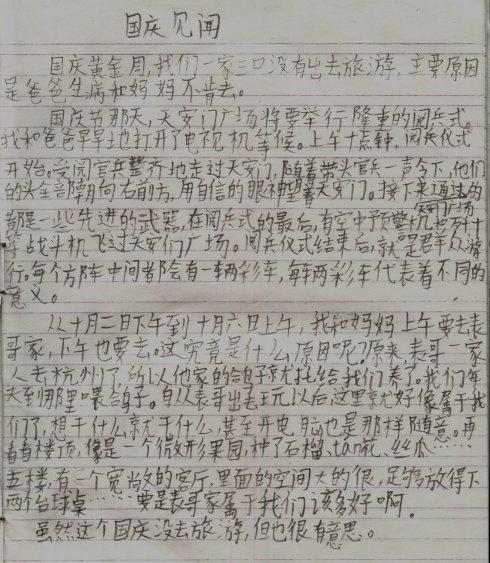 国庆见闻
国庆黄金周,我们一家三口没有出去旅游,主要原因
是爸爸生病和妈妈不肯去。
国庆节那天,天安门广场将要举行隆重的阅兵式。
我和爸爸早早地打开了电视机等候。上午十点钟,阅兵仪式
开始。受阅官兵整齐地走过天安门,随着带头官兵一声令下,他们
的头全部朝向右前方,用自信的眼神望着天安门。接下来通过的
天安门广场
都是一些先进的武器,在阅兵式的最后,有空中预警机
等战斗机飞过天安门广场。阅兵仪式结束后,就是群众游
行,每个方阵中间都会有一辆彩车,每辆彩车代表着不同的
意义。
从十月二日下午到十月六日上午,我和妈妈上午要去表
哥家,下午也要去。这究竟是什么原因呢?原来表哥一家
人去杭州了,所以他家的鸽子就托给我们养了。我们每
天到那里喂鸽子。自从表哥出去玩以后,这里就好像属于我
们了,想干什么就干什么,甚至开电脑也是那样随意。再
看看楼顶,像是一个微形果园,种了石榴、tán花、丝瓜……
五楼,有一个宽敞的客厅,里面的空间大的很,足够放得下
两个台球桌……要是表哥家属于我们该多好啊。
虽然这个国庆没去旅游,但也很有意思。